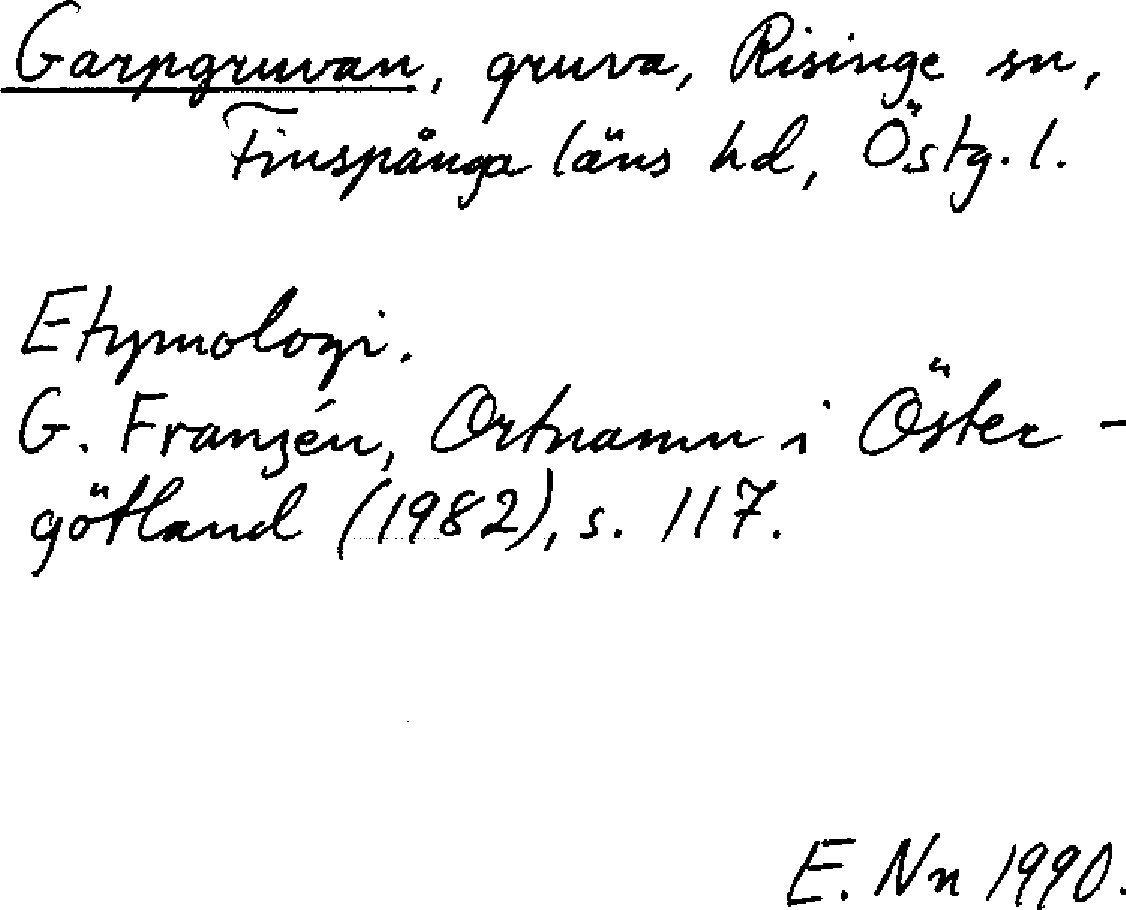 Garpgruvan, gruva, Risinge sn,
Finspånga läns hd, Östg. l.
Etymologi.
G. Franzén, Ortnamn i Öster-
götland (1982), s. 117.
E. Nn 1990.